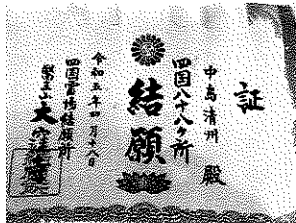 証
中島清州 殿
四国八十八ヶ所
結願
令和五年四月十八日
四国霊場結願所
第八十八番 大窪寺